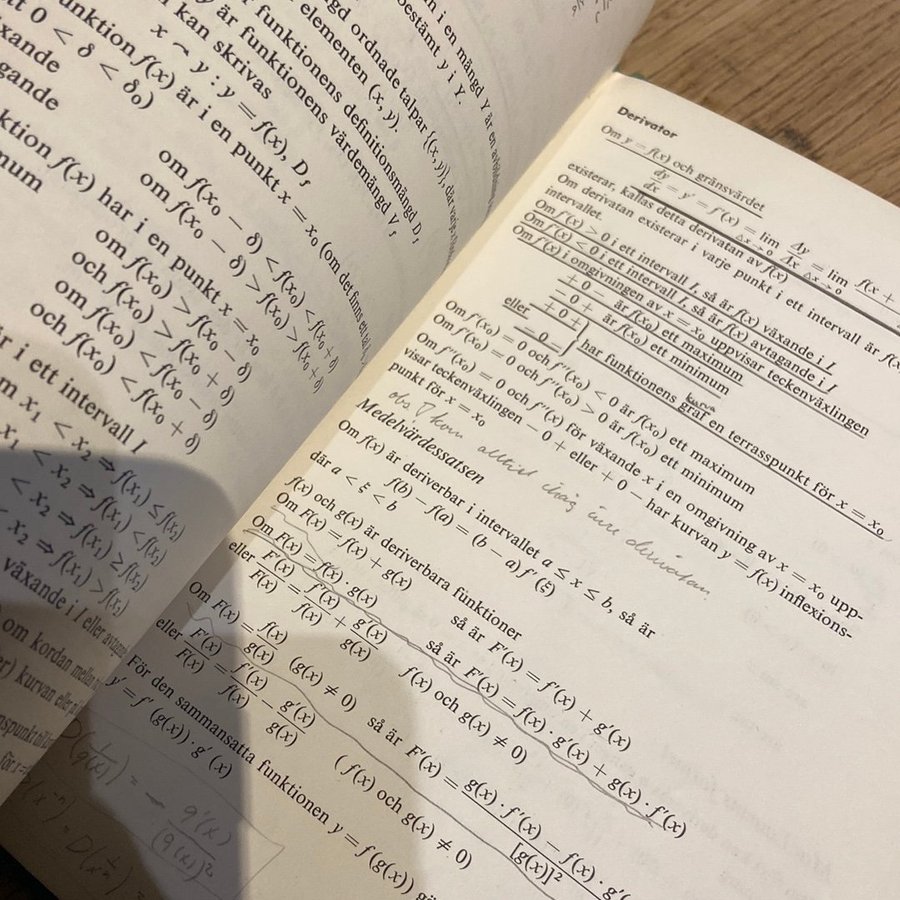 en i en mängd Y är en
bestämt y i Y.
gd ordnade talpar {(x, y)}, där varje
elementen (x, y).
r funktionens definitionsmängd D_f
y är funktionens värdemängd V_f
kan skrivas
x ↷ y : y = f(x), D_f
funktion f(x) är i en punkt x = x₀ (om det finns ett tal
tt 0 < δ < δ₀)
växande om f(x₀ − δ) < f(x₀) < f(x₀ + δ)
gande om f(x₀ − δ) > f(x₀) > f(x₀ + δ)
ktion f(x) har i en punkt x = x₀
mum om f(x₀) > f(x₀ − δ)
och f(x₀) > f(x₀ + δ)
om f(x₀) < f(x₀ − δ)
och f(x₀) < f(x₀ + δ)
är i ett intervall I
m x₁ < x₂ ⇒ f(x₁) ≤ f(x₂)
x₁ < x₂ ⇒ f(x₁) < f(x₂)
< x₂ ⇒ f(x₁) ≥ f(x₂)
< x₂ ⇒ f(x₁) > f(x₂)
växande i I eller
om kordan mellan
er) kurvan eller
Derivator
Om y = f(x) och gränsvärdet
dy/dx = y' = f'(x) = lim Δx→0 Δy/Δx = lim Δx→0 f(x +
existerar, kallas detta derivatan av f(x)
Om derivatan existerar i varje punkt i ett intervall är f(x)
intervallet.
Om f'(x) > 0 i ett intervall I, så är f(x) växande i I
Om f'(x) < 0 i ett intervall I, så är f(x) avtagande i I
Om f'(x) i omgivningen av x = x₀ uppvisar teckenväxlingen
+ 0 − är f(x₀) ett maximum
− 0 + är f(x₀) ett minimum
+ 0 +
eller − 0 − } har funktionens graf en terrasspunkt för x = x₀
kurva
Om f'(x₀) = 0 och f''(x₀) < 0 är f(x₀) ett maximum
Om f'(x₀) = 0 och f''(x₀) > 0 är f(x₀) ett minimum
Om f''(x₀) = 0 och f''(x) för växande x i en omgivning av x = x₀ upp-
visar teckenväxlingen − 0 + eller + 0 − har kurvan y = f(x) inflexions-
punkt för x = x₀
Medelvärdessatsen
Om f(x) är deriverbar i intervallet a ≤ x ≤ b, så är
f(b) − f(a) = (b − a) f'(ξ)
där a < ξ < b
f(x) och g(x) är deriverbara funktioner
Om F(x) = f(x) + g(x) så är F'(x) = f'(x) + g'(x)
Om F(x) = f(x) · g(x) så är F'(x) = f(x) · g'(x) + g(x) · f'(x)
eller F'(x)/F(x) = f'(x)/f(x) + g'(x)/g(x) f(x) och g(x) ≠ 0)
Om F(x) = f(x)/g(x) (g(x) ≠ 0) så är F'(x) = g(x) · f'(x) − f(x) · g'(/[g(x)]²
eller F'(x)/F(x) = f'(x)/f(x) − g'(x)/g(x) (f(x) och g(x) ≠ 0)
För den sammansatta funktionen y = f(g(x))
y' = f'(g(x)) · g'(x)
D(1/g(x)) = − g'(x)/(g(x))²